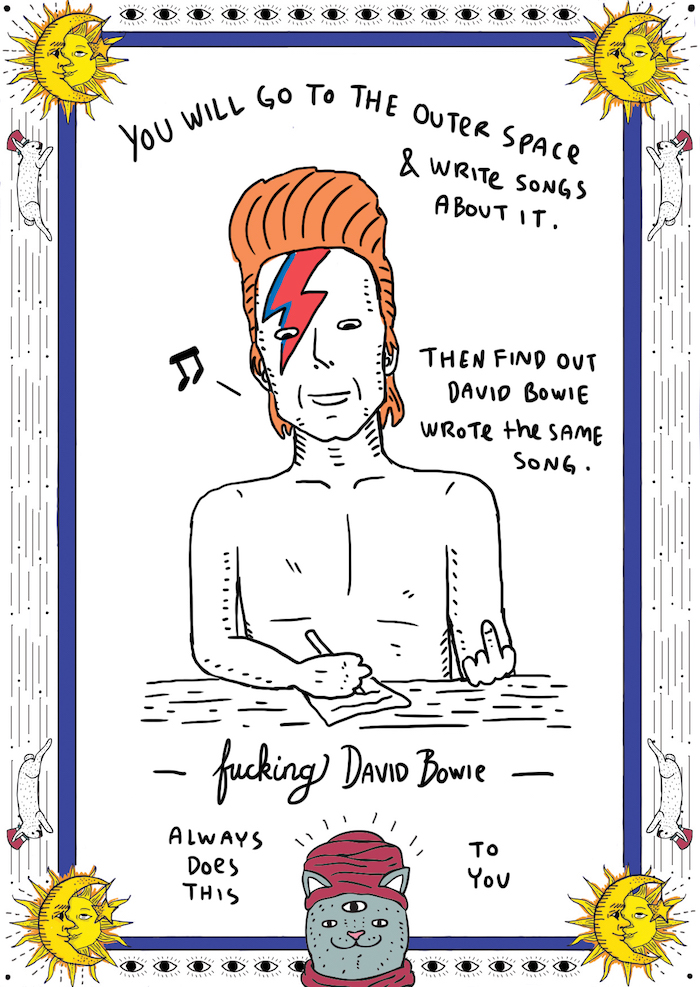 YOU WILL GO TO THE OUTER SPACE
& WRITE SONGS
ABOUT IT.
THEN FIND OUT
DAVID BOWIE
WROTE the SAME
SONG.
— fucking DAVID BOWIE —
ALWAYS
DOES
THIS
TO
YOU